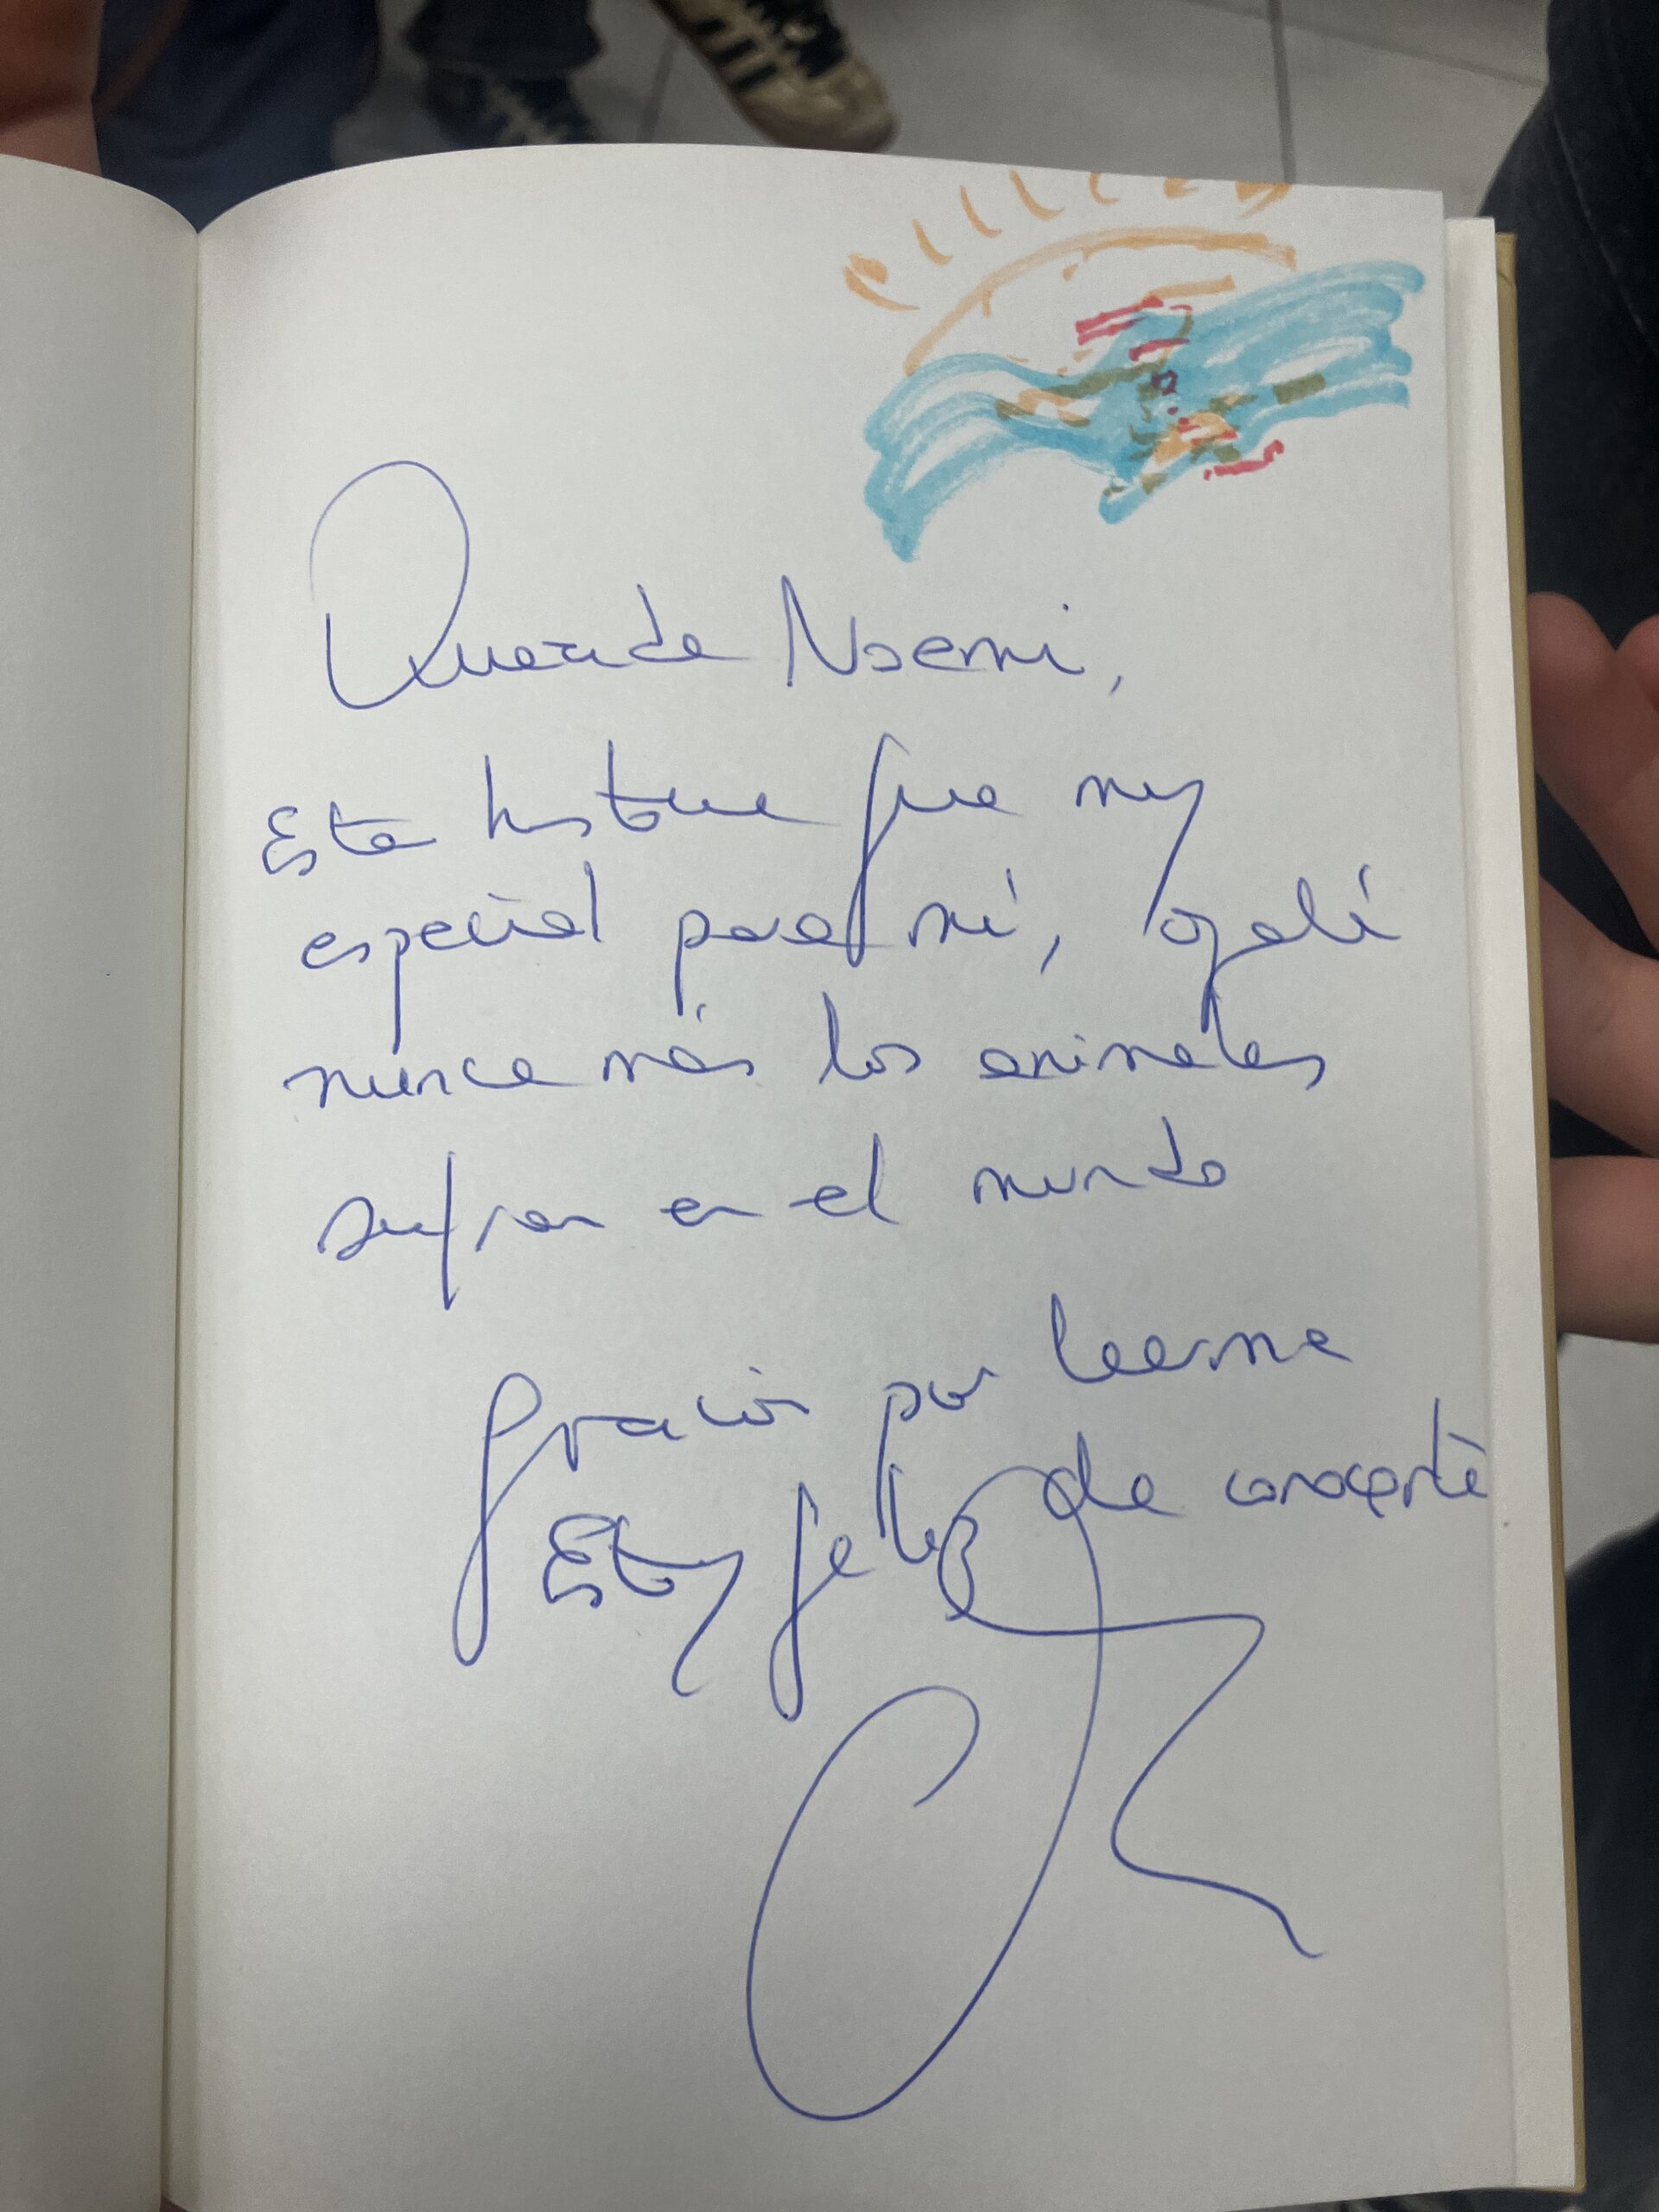 Querida Noemi,
Esta historia fue muy
especial para mí, ojalá
nunca más los animales
sufran en el mundo
Gracias por leerme
Estoy feliz de conocerte